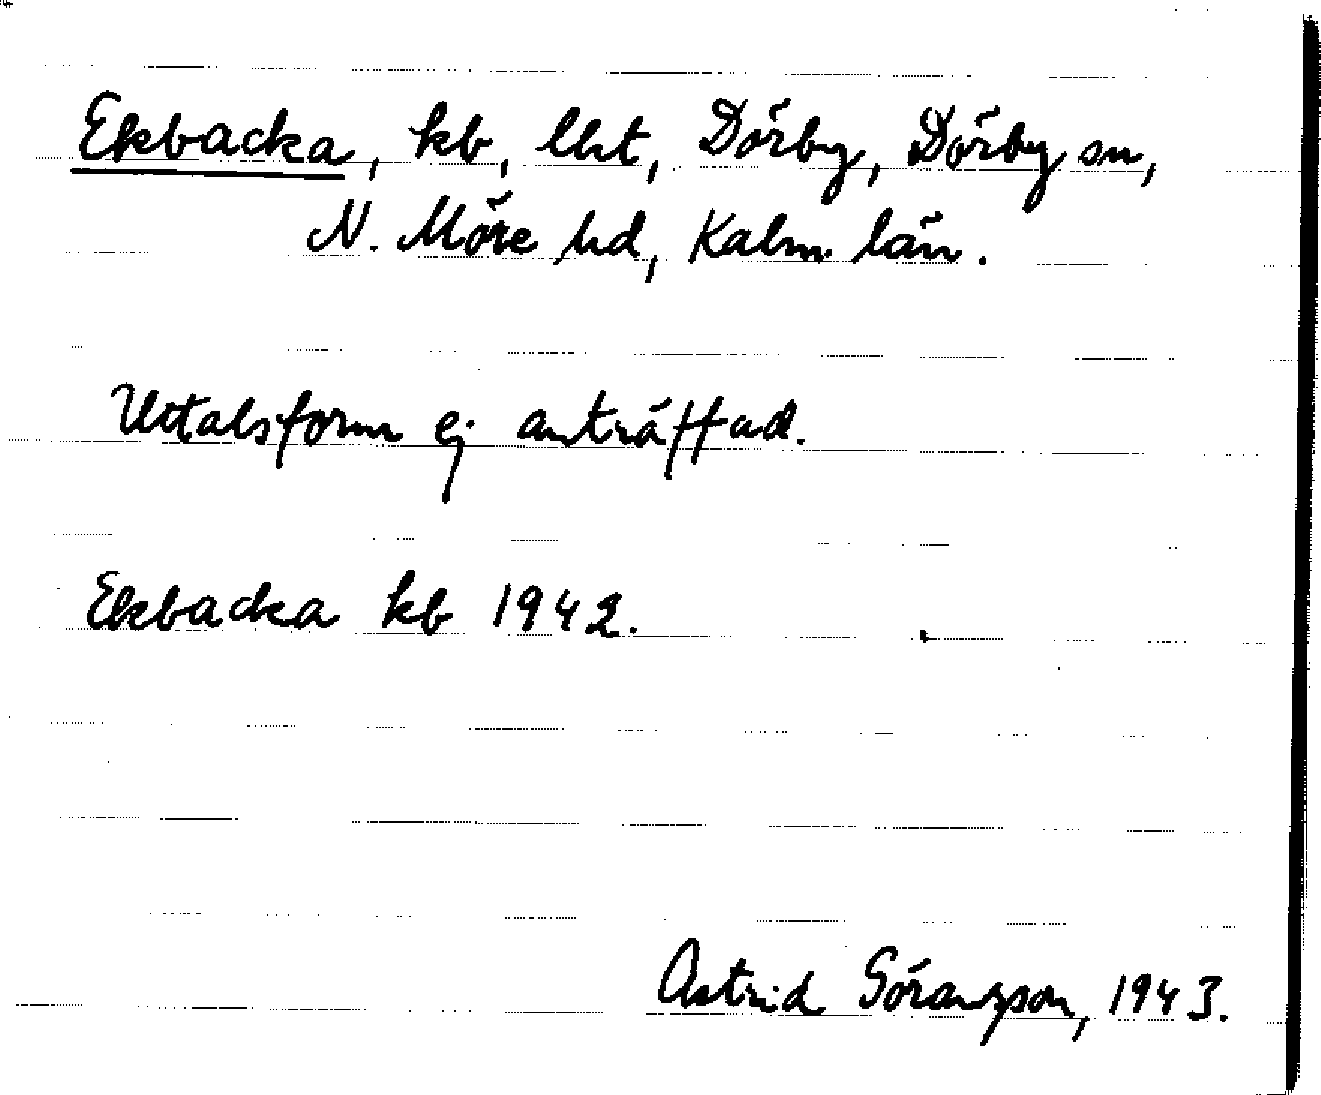 Ekbacka, kb, lht, Dörby, Dörby sn,
N. Möre hd, Kalm. län.
Uttalsform ej anträffad.
Ekbacka kb 1942.
Astrid Göransson, 1943.